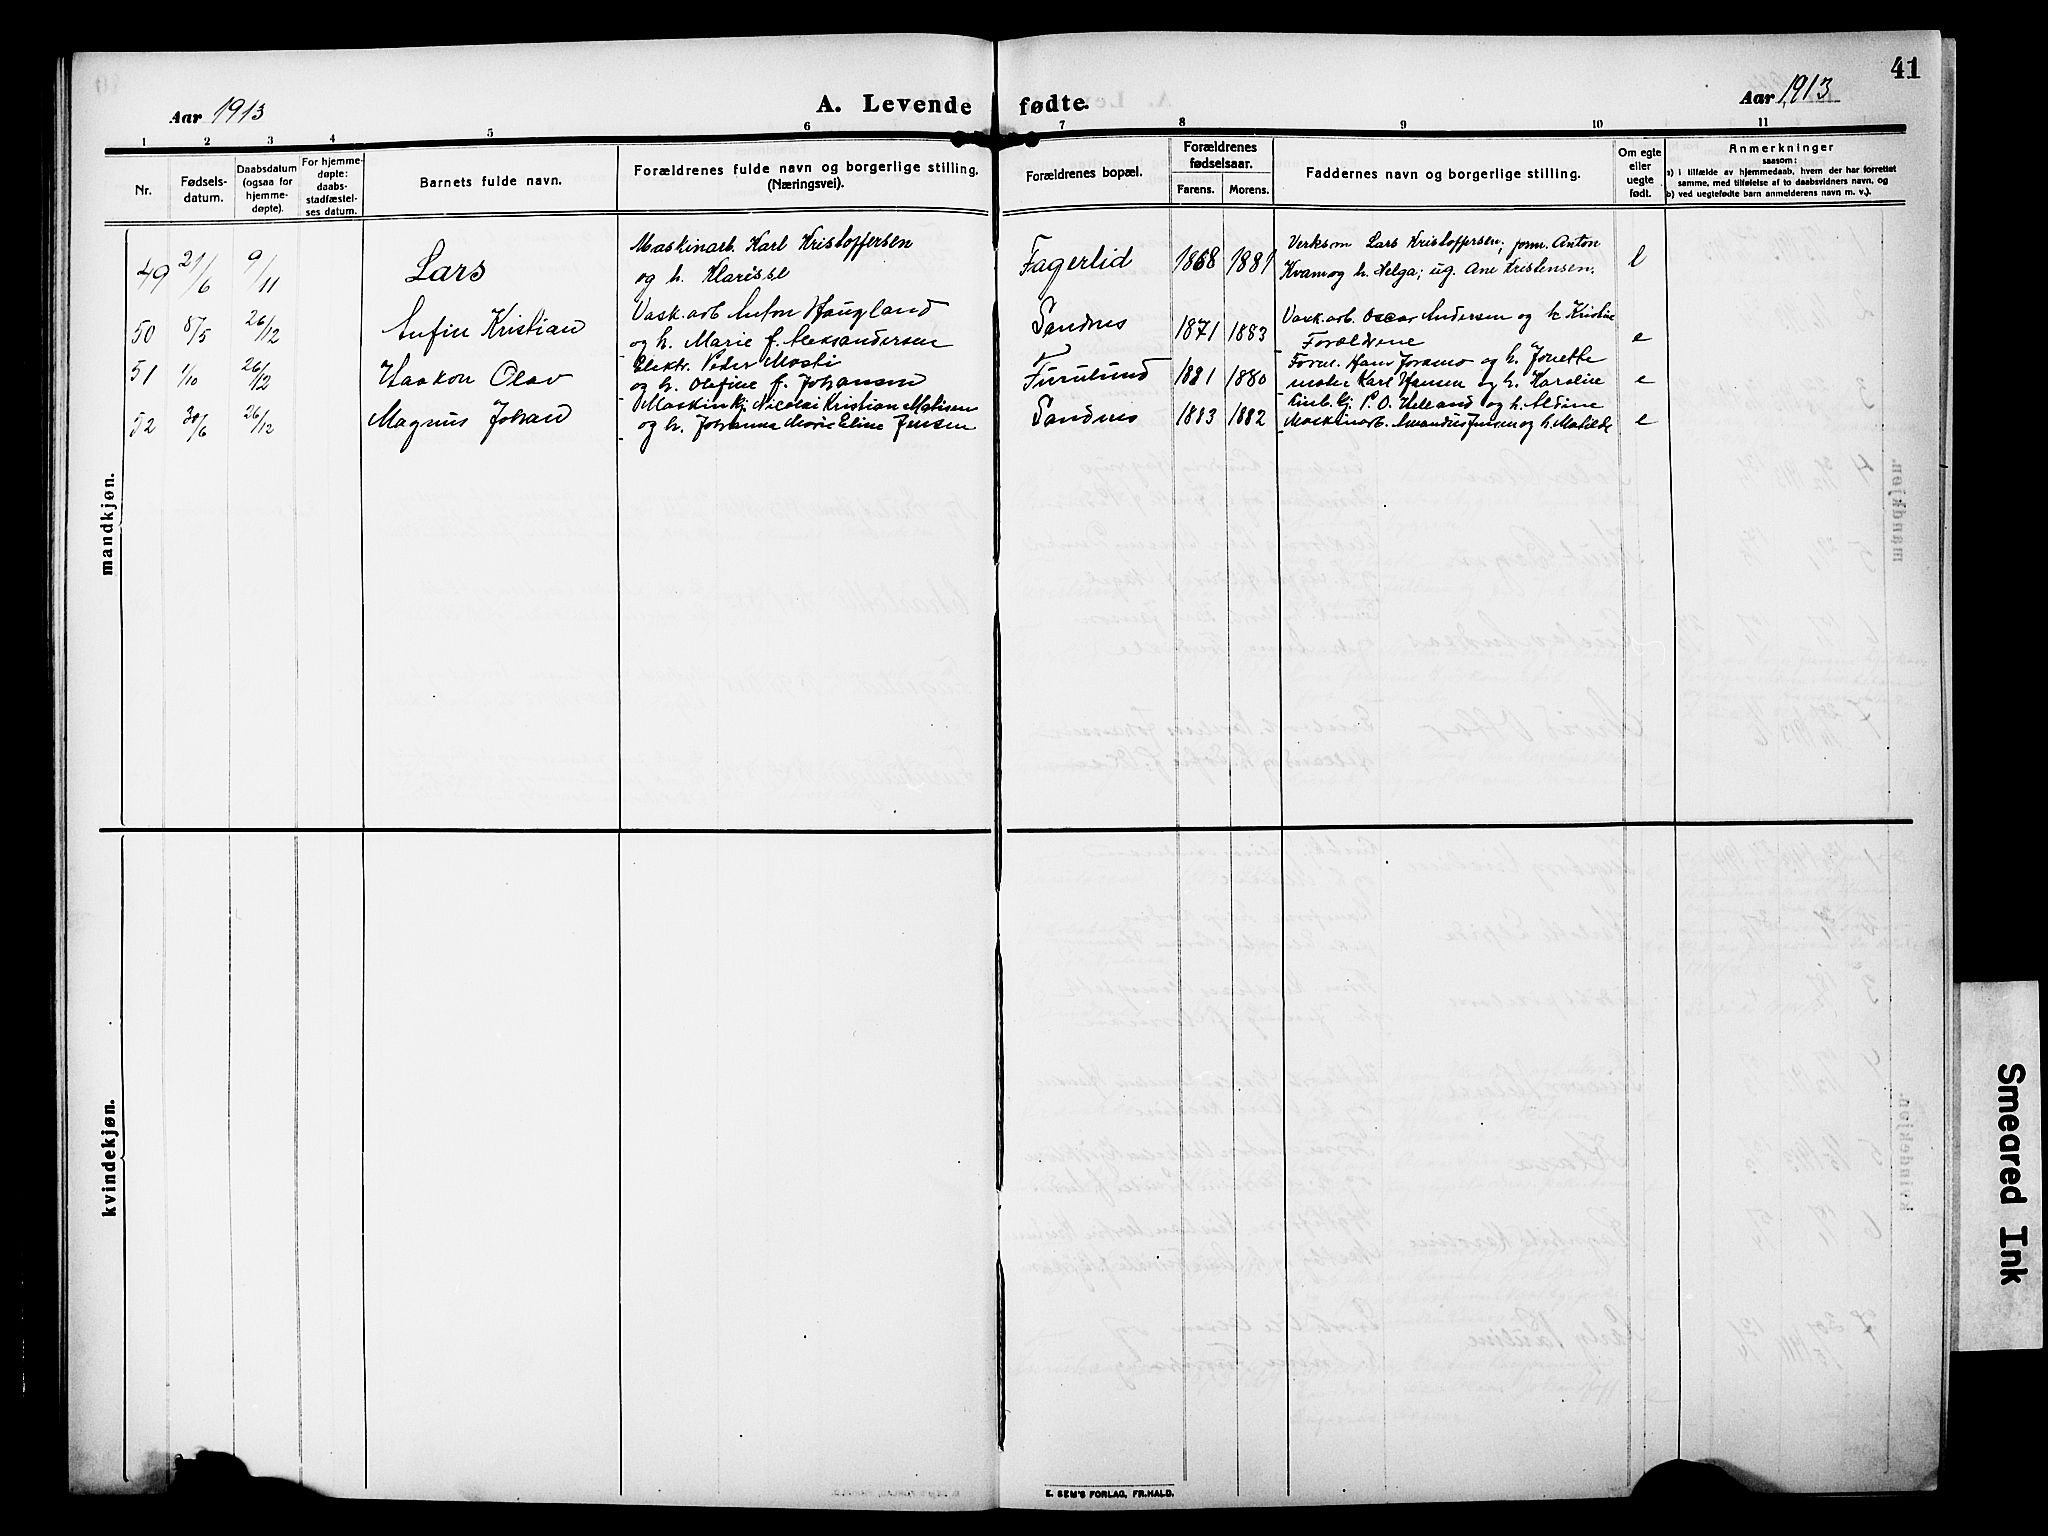 41
Aar 1913
A. Levende fødte.
Aar 1913
1 2 3 4 5 6 7 8 9 10 11
Nr.
Fødsels-
datum.
Daabsdatum
(ogsaa for
hjemme-
døpte).
For hjemme-
døpte:
daabs-
stadfæstel-
ses datum.
Barnets fulde navn.
Forældrenes fulde navn og borgerlige stilling.
(Næringsvei).
Forældrenes bopæl.
Forældrenes
fødselsaar.
Farens. Morens.
Faddernes navn og borgerlige stilling.
Om egte
eller
uegte
født.
Anmerkninger
saasom:
a) i tilfælde av hjemmedaab, hvem der har forrettet
samme, med tilføielse af to daabsvidners navn, og
b) ved uegtefødte barn anmelderens navn m. v.).
mandkjøn.
49 21/6 9/11 Lars
Maskinarb. Karl Kristoffersen
og h. Klarisse
Fagerlid 1868 1881
Verksm Lars Kristoffersen; form. Anton
Kvam og h. Helga; ug. Ane Kristensen.
e
50 8/5 26/12 Enfin Kristian
Vask.arb Anton Haugland
og h. Marie f. Aleksandersen
Sandnes 1871 1883
Vask.arb. Oscar Andersen og h. Kristine
Forældrene
e
51 1/10 26/12 Haakon Olav
Elektr. Peder Mosti
og h. Olefine f. Johansen
Furulund 1881 1880
Form. Hans Joramo og h. Jonette
maler Karl Hansen og h. Karoline
e
52 30/6 26/12 Magnus Johan
Maskinkj. Nicolai Kristian Matisen
og h. Johanna Marie Eline Jensen
Sandnes 1883 1882
P. O. Helland og h. Aldine
Maskinarb. Amandus Jensen og h. Matilde
e
kvindekjøn.
E. SEM'S FORLAG, FR.HALD.
Smeared Ink